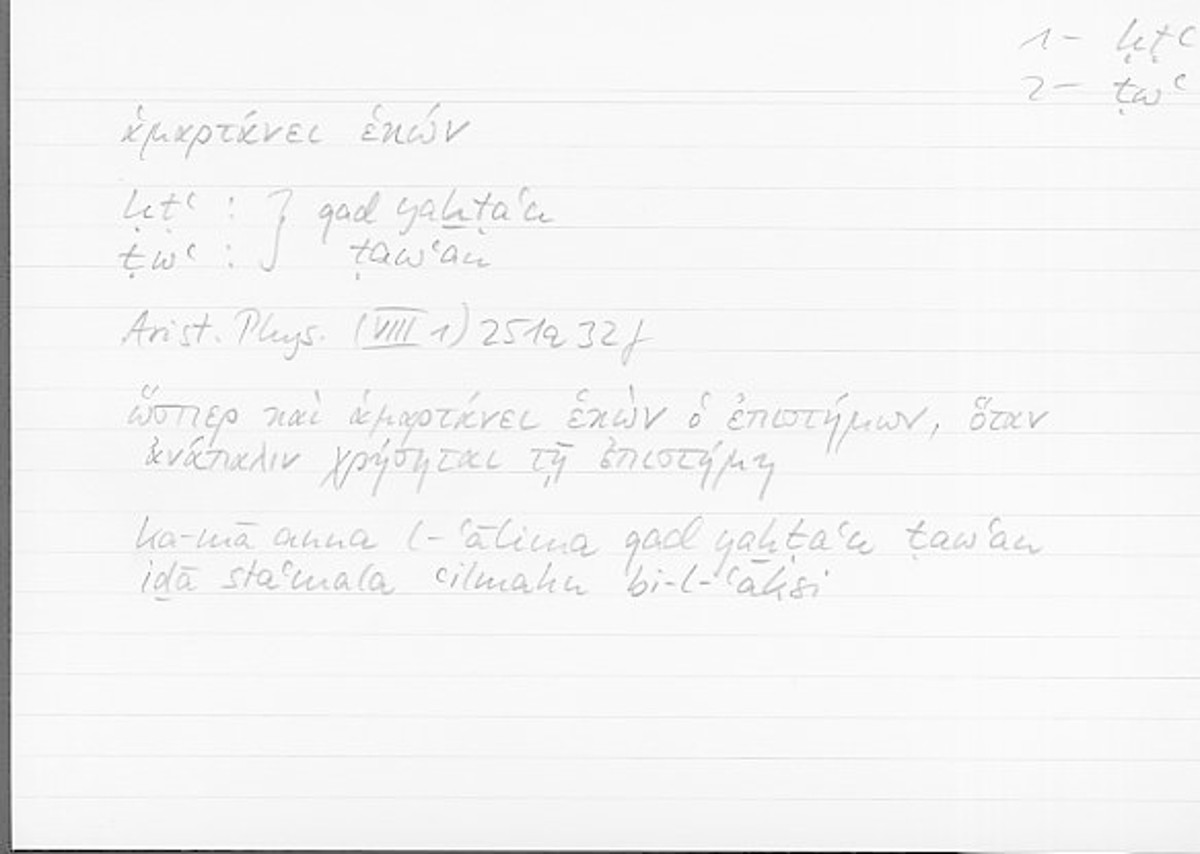 1 – ḫṭʿ
2 – ṭwʿ
ἁμαρτάνει ἑκών
ḫṭʿ : } qad yaḫṭaʿu
ṭwʿ : } ṭawʿan
Arist. Phys. (VIII 1) 251a 32f
ὥσπερ καὶ ἁμαρτάνει ἑκὼν ὁ ἐπιστήμων, ὅταν
ἀνάπαλιν χρήσηται τῇ ἐπιστήμῃ
ka-mā anna l-ʿālima qad yaḫṭaʿu ṭawʿan
iḏā staʿmala ʿilmahu bi-l-ʿāksi